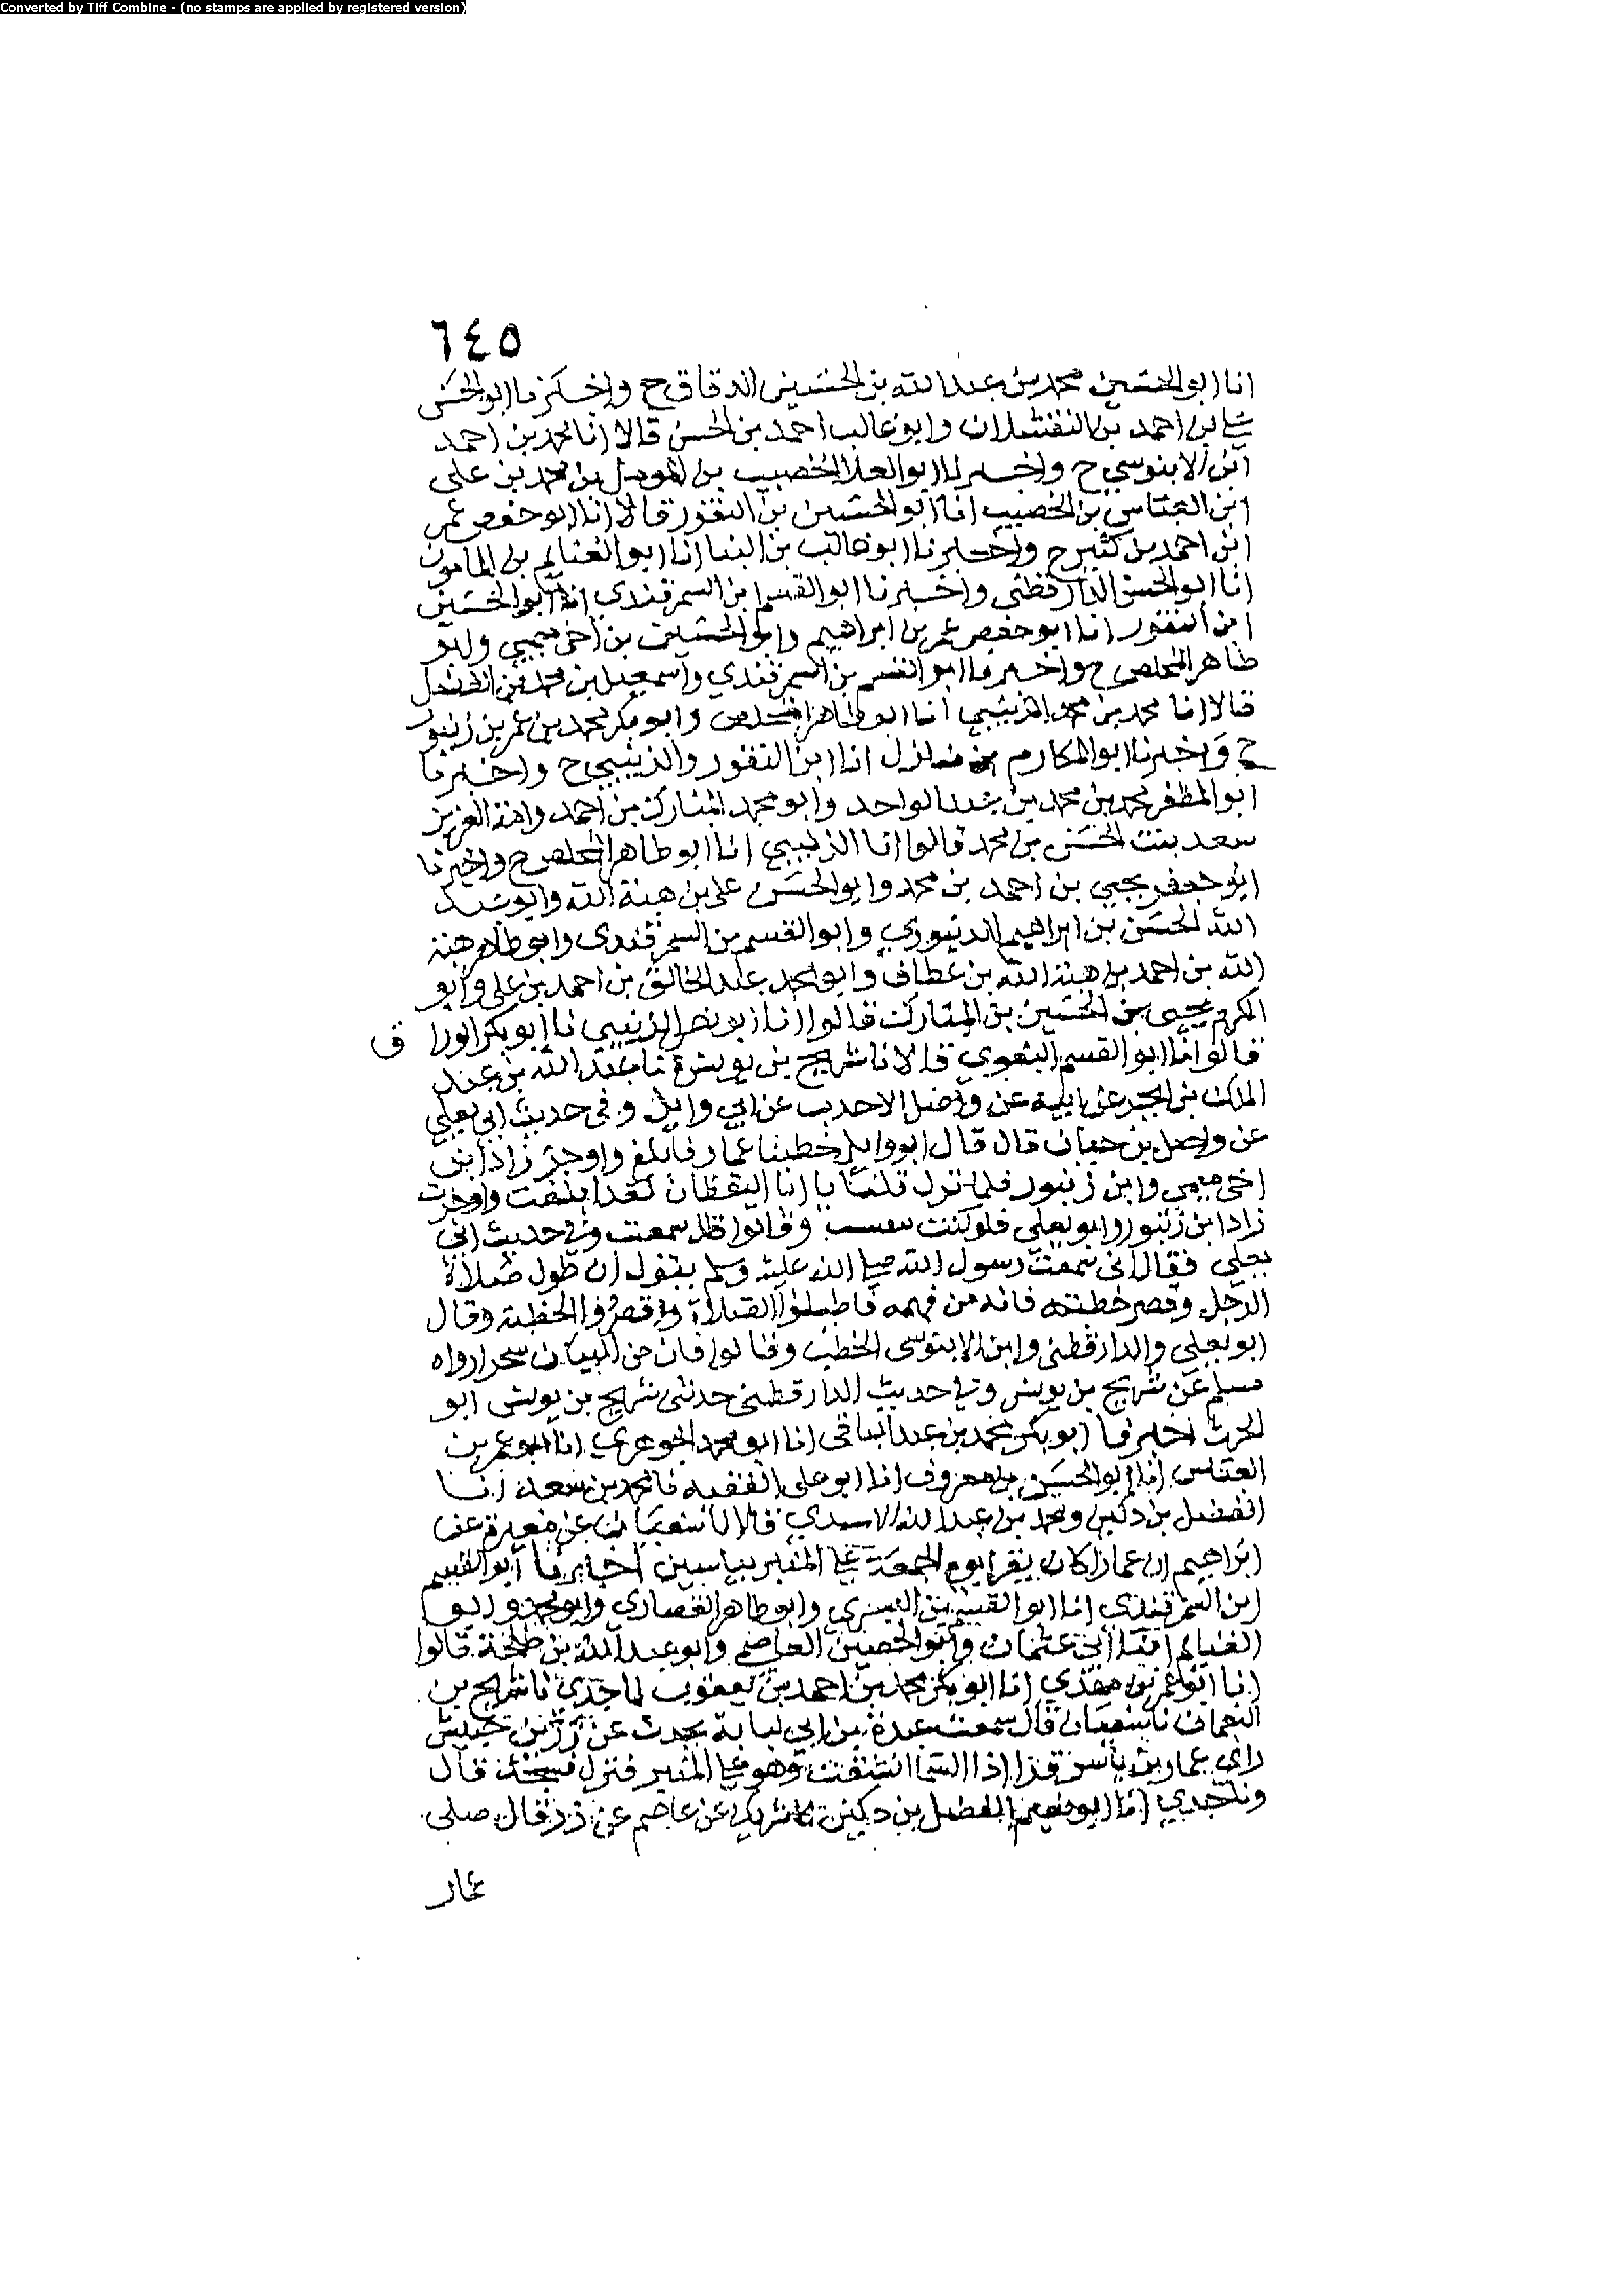 Converted by Tiff Combine - (no stamps are applied by registered version)
٦٤٥
انا ابو الحسين محمد بن عبد الله بن الحسين الدقاق ح واخبرنا ابو الحسن
علي بن احمد بن وابو غالب احمد بن الحسن قالا انا محمد بن احمد
ابن الابنوسي ح واخبرنا ابو العلا الخصيب بن المومل بن محمد بن على
ابن العباس بن الخصيب انا ابو الحسين بن النقور قالا انا ابو حفص عمر
ابن احمد بن كثير ح واخبرنا ابو غالب بن البنا انا ابو الغنايم بن المامون
انا ابو الحسن الدارقطنى واخبرنا ابو القسم ابن السمرقندي انا ابو الحسين
ابن النقور انا ابو حفص عمر بن ابراهيم وابو الحسين بن اخي ميمي وابو
طاهر المخلص ح واخبرنا ابو القسم بن السمرقندي واسمعيل بن محمد بن الفضل
قالا انا محمد بن محمد الزينبي انا ابو طاهر المخلص وابو بكر محمد بن عمر بن زنبور
ح واخبرنا ابو المكارم انا ابن النقور والزينبي ح واخبرنا
ابو المظفر محمد بن محمد بن عبد الواحد وابو محمد المبارك بن احمد وامة العزيز
سعد بنت الحسن بن محمد قالوا انا الزينبي انا ابو طاهر المخلص ح واخبرنا
ابو جعفر يحيى بن احمد بن محمد وابو الحسن على بن هبة الله وابو عبد
الله الحسن بن ابراهيم الدينوري وابو القسم بن السمرقندى وابو طاهر هبة
الله بن احمد بن هبة الله بن عطاف وابو محمد عبد الخالق بن احمد بن على وابو
الكرم يحيى بن الحسين بن المبارك قالوا انا ابو نصر الزينبي نا ابو بكر الورا ق
قالوا انا ابو القسم البغوي قالا نا شريح بن يونس نا عبد الله بن عبد
الملك بن ابجر عن ابيه عن واصل الاحدب عن ابي وايل وفى حديث ابى يعلى
عن واصل بن حيان قال قال ابو وايل خطبنا عمار فابلغ واوجز زاد ابن
اخى ميمي وابن زنبور فلما نزل قلنا يا ابا اليقظان لقد ابلغت واوجزت
زاد ابن زنبور وابو يعلى فلو كنت وقالوا سمعت وفي حديث ابي
يعلى فقال انى سمعت رسول الله صلى الله عليه وسلم يقول ان طول صلاة
الرجل وقصر خطبته فانه من فهمه فاطيلوا الصلاة واقصروا الخطبة وقال
ابو يعلى والدارقطنى وابن الابنوسى الخطب وقالوا فان من البيان سحرا رواه
مسلم عن شريح بن يونس وفي حديث الدارقطنى حدثنى شريح بن يونس ابو
الحرث اخبرنا ابو بكر محمد بن عبد الباقى انا ابو محمد الجوهري انا ابو عمر بن
العباس انا ابو الحسن بن معروف انا ابو على الفقيه نا محمد بن سعد انا
الفضل بن دكين ومحمد بن عبد الله الاسدي قالا نا سفيان عن مغيرة عن
ابراهيم ان عمارا كان يقرا يوم الجمعة على المنبر بياسين اخبرنا ابو القسم
ابن السمرقندي انا ابو القسم بن البسري وابو طاهر القصاري وابو محمد وابو
الغنايم ابنا ابي عثمان وابو الحصين العاصم وابو عبد الله بن طلحة قالوا
انا ابو عمر بن مهدي انا ابو بكر محمد بن احمد بن يعقوب نا جدي نا شريح بن
النعمان نا سفيان قال سمعت عبدة بن ابي لبابة يحدث عن زر بن حبيش
راى عمار بن ياسر قرا اذا السما انشقت وهو على المنبر فنزل فسجد قال
ونا جدي انا ابو نعيم الفضل بن دكين نا شريك عن عاصم عن زر قال صلى
عمار